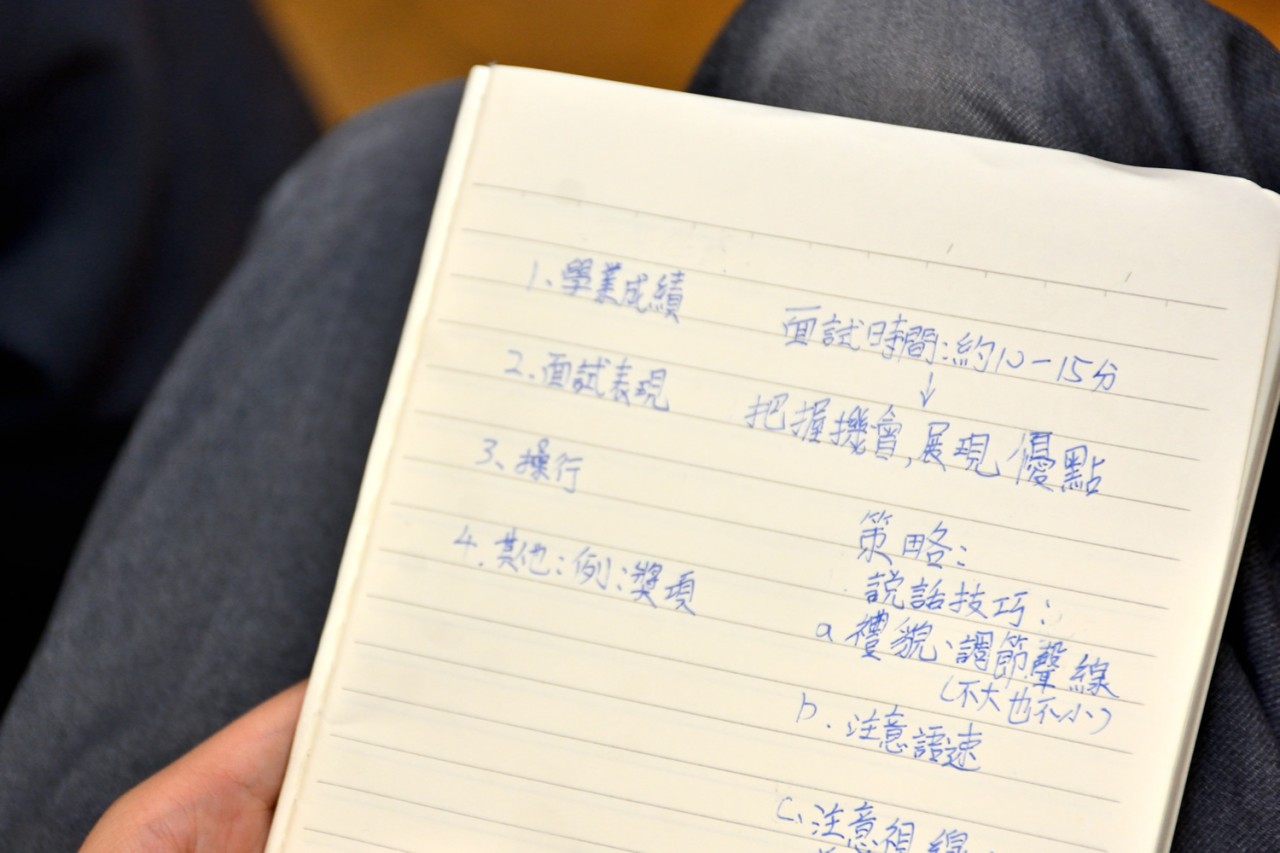 1、學業成績
2.面試表現
3、操行
4.其他：例：獎項
面試時間：約10-15分
↓
把握機會,展現優點
策略：
説話技巧：
a 禮貌、調節聲線
(不大也不小)
b.注意語速
C、注意視線